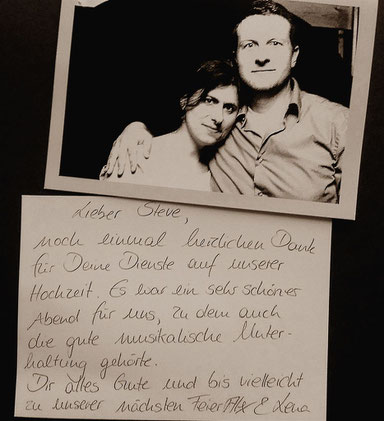 Lieber Steve,
noch einmal herzlichen Dank
für Deine Dienste auf unserer
Hochzeit. Es war ein sehr schöner
Abend für uns, zu dem auch
die gute musikalische Unter-
haltung gehörte.
Dir alles Gute und bis vielleicht
zu unserer nächsten Feier Alex & Lena